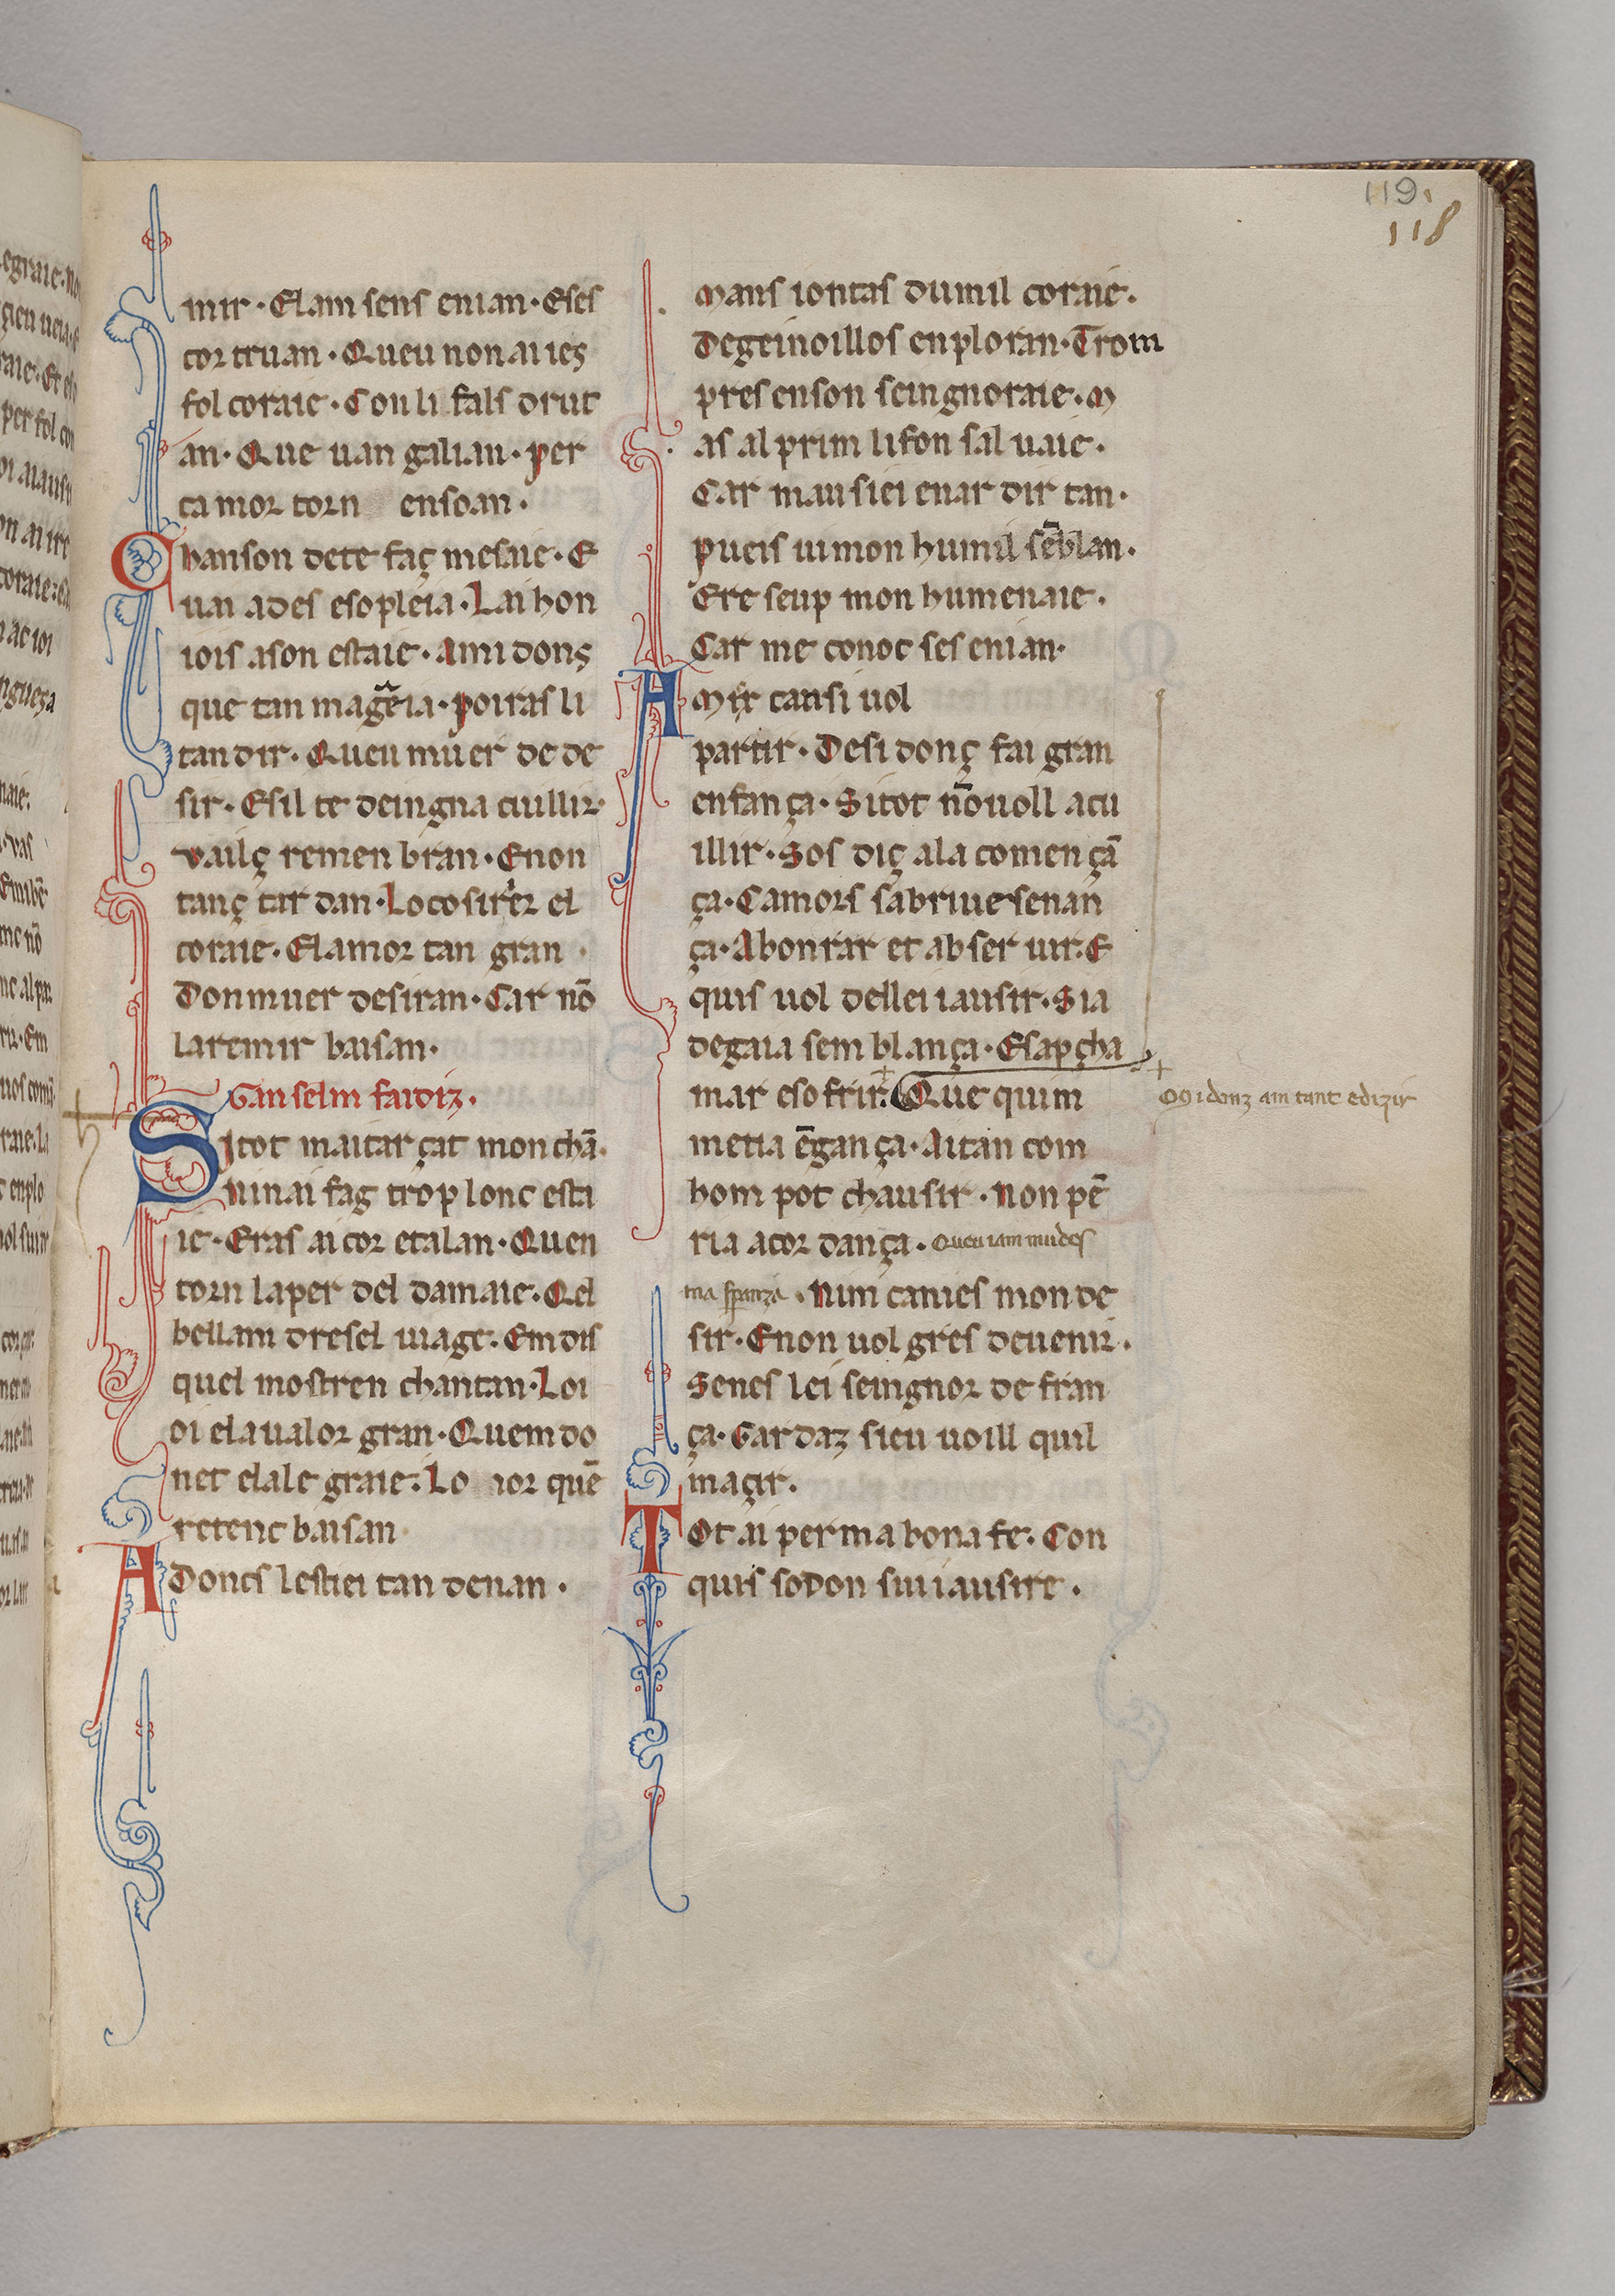 119.
118
mir · Elam sens enian · Eses
cor truan · Queu non ai ies
fol coraie · Con li fals drut
an · Que uan galian · per
ca mor torn ensoan ·
Chanson dete faç mesaie · E
uai ades esopleia · Lai hon
iois ason estaie · Ami dons
que tan mag̃eia · poiras li
tan dir · Queu muer de de
sir · E sil te deingna cullir ·
vailç remen bran · E non
tanç tar dan · Lo cosirer el
coraie · El amor tan gran ·
Don muer desiran · Car nõ
laremir baisan ·
Gan selm faidiz ·
Sitot maitar çat mon chã ·
ninai fag trop lonc esta
ie · Eras ai cor etalan · Quen
torn laper del damaie · Qel
bellam dresel uiage · Em dis
quel mostren chantan · Loi
oi elaualor gran · Quem do
net elale graie · Lo ior quẽ
retenc baisan
Adoncs lestiei tan denan ·
Mans iontas dumil coraie ·
De geinoillos enploran · Trom
pres enson seingnoraie · M
as al prim li fon sal uaie ·
Car mau siei enar dir tan ·
pueis ui mon humil sẽblan ·
Ere seup mon humenaie ·
Car me conoc ses enian ·
Amfr cansi uol
partir · De si donç fai gran
enfança · Sitot nõ uoll acu
illir · Sos diç ala comen çã
ça · Camors sabriue senan
ça · Abonrar et ab ser uir · E
quis uol dellei iausir · Sia
degaia sem blança · Esapcha
mar eso frir · Que quim
Midonz am tant edizir
metia ẽgan ça · Aitan com
hom pot chausir · Non pẽ
ria acor dança · Queu iam mudes
ma spanza · Nim camies mon de
sir · E non uol gres deuenir ·
Senes lei seingnor de fran
ça · Gardaz sieu uoill quil
maçir ·
Tot ai per ma bona fe · Con
quis so don sui iausire ·